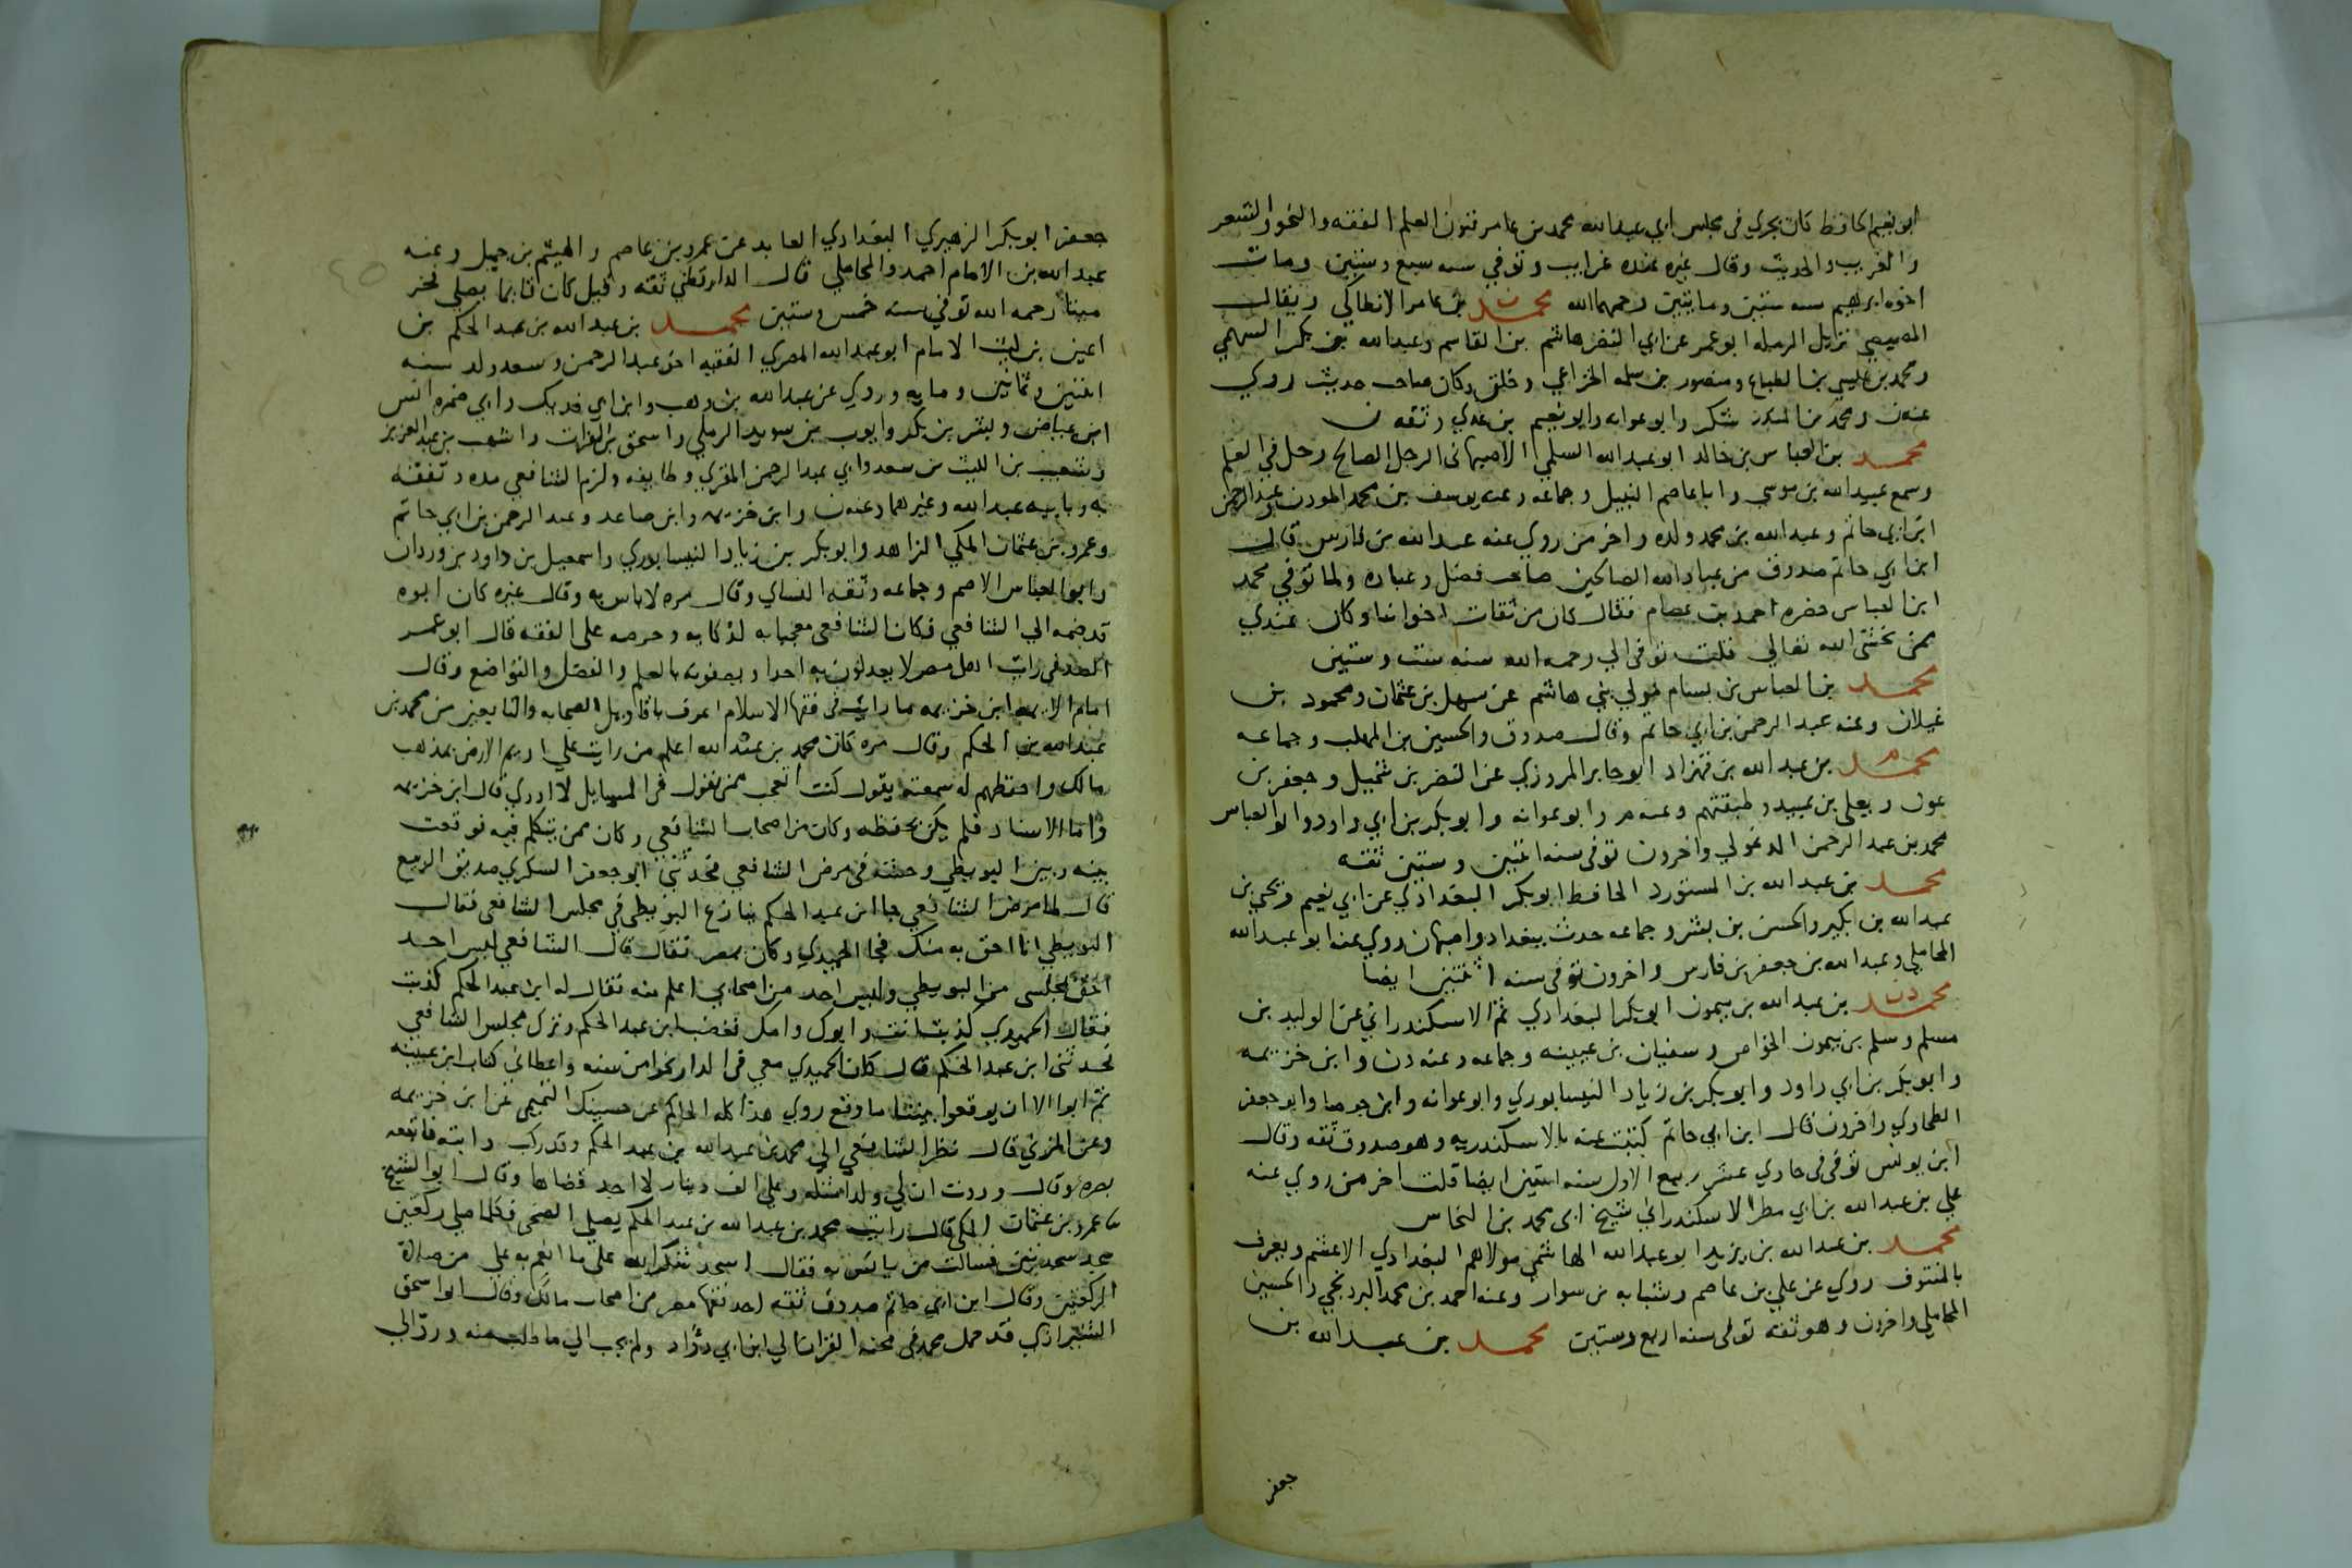 ابو نعيم الحافظ كان يجري في مجلس ابي عبدالله محمد بن عامر فنون العلم الفقه والنحو والشعر
والغريب والحديث وقال غيره عنده غرايب وتوفي سنه سبع وستين ومات
اخوه ابرهيم سنه ستين ومايتين رحمهما الله محمد بن عامر الانطاكي ويقال
المصيصي نزيل الرمله ابو عمر عن ابي النضر هاشم بن القاسم وعبدالله بن بكر السهمي
ومحمد بن عيسي بن الطباع ومنصور بن سلمه الخزاعي وخلق وكان صاحب حديث روي
عنه ن ومحمد بن المنذر شكر وابو عوانه وابو نعيم بن عدي وثقه ن
محمد بن العباس بن خالد ابو عبدالله السلمي الاصبهاني الرجل الصالح رحل في العلم
وسمع عبيدالله بن موسي وابا عاصم النبيل وجماعه وعنه يوسف بن محمد الموذن وعبد الرحمن
ابن ابي حاتم وعبدالله بن محمد ولده واخر من روي عنه عبدالله بن فارس قال
ابن ابي حاتم صدوق من عباد الله الصالحين صاحب فضل وعباده ولما توفي محمد
ابن العباس حضره احمد بن عصام فقال كان من ثقات اخواننا وكان عندي
ممن يخشي الله تعالي قلت توفي الي رحمه الله سنه ست وستين
محمد بن العباس بن بسام مولي بني هاشم عن سهل بن عثمان ومحمود بن
غيلان وعنه عبد الرحمن بن ابي حاتم وقال صدوق والحسين بن المهلب وجماعه
محمد بن عبدالله بن قهزاد ابو جابر المروزي عن النضر بن شميل وجعفر بن
عون ويعلي بن عبيد وطبقتهم وعنه م وابو عوانه وابو بكر بن ابي داود وابو العباس
محمد بن عبد الرحمن الدغولي واخرون توفي سنه اثنين وستين ثقه
محمد بن عبدالله بن المستورد الحافظ ابو بكر البغدادي عن ابي نعيم ويحي بن
عبدالله بن بكير والحسن بن بشر وجماعه حدث ببغداد واصبهان روي عنه ابو عبدالله
المحاملي وعبدالله بن جعفر بن فارس واخرون توفي سنه اثنتين ايضا
محمد بن عبدالله بن ميمون ابو بكر البغدادي ثم الاسكندراني عن الوليد بن
مسلم وسلم بن ميمون الخواص وسفيان بن عيينه وجماعه وعنه د ن وابن خزيمه
وابو بكر بن ابي داود وابو بكر بن زياد النيسابوري وابو عوانه وابن جوصا وابو جعفر
الطحاوي واخرون قال ابن ابي حاتم كتبت عنه بالاسكندريه وهو صدوق ثقه وقال
ابن يونس توفي في حادي عشر ربيع الاول سنه اثنتين ايضا قلت اخر من روي عنه
علي بن عبدالله بن ابي مطر الاسكندراني شيخ ابي محمد بن النحاس
محمد بن عبدالله بن يزيد ابو عبدالله الهاشمي مولاهم البغدادي الاعشم ويعرف
بالمنتوف روي عن علي بن عاصم وشبابه بن سوار وعنه احمد بن محمد البردنجي والحسين
المحاملي واخرون وهو ثقه توفي سنه اربع وستين محمد بن عبد الله بن
جعفر
جعفر ابو بكر الزهيري البغدادي العابد عن عمرو بن عاصم والهيثم بن جميل وعنه
عبدالله بن الامام احمد والمحاملي قال الدارقطني ثقه وقيل كان قايما يصلي فخر
ميتا رحمه الله توفي سنه خمس وستين محمد بن عبدالله بن عبد الحكم بن
اعين بن ليث الامام ابو عبدالله المصري الفقيه اخو عبد الرحمن وسعد ولد سنه
اثنتين وثمانين ومايه وروي عن عبدالله بن وهب وابن ابي فديك وابي ضمره انس
ابن عياض وبشر بن بكر وايوب بن سويد الرملي واسحق بن الفرات واشهب بن عبد العزيز
وشعيب بن الليث بن سعد وابي عبد الرحمن المقري وطايفه ولزم الشافعي مده وتفقه
به وبابيه عبدالله وغيرهما وعنه ن وابن خزيمه وابن صاعد وعبد الرحمن بن ابي حاتم
وعمرو بن عثمان المكي الزاهد وابو بكر بن زياد النيسابوري واسمعيل بن داود بن وردان
وابو العباس الاصم وجماعه وثقه النساي وقال مره لاباس به وقال غيره كان ابوه
قد ضمه الي الشافعي فكان الشافعي معجبا به لذكايه وحرصه علي الفقه قال ابو عمر
الصدفي رايت اهل مصر لا يعدلون به احدا ويصفونه بالعلم والفضل والتواضع وقال
امام الايمه ابن خزيمه ما رايت في فقها الاسلام اعرف باقاويل الصحابه والتابعين من محمد بن
عبدالله بن الحكم وقال مره كان محمد بن عبدالله اعلم من رايت علي اديم الارض بمذهب
مالك واحفظهم له سمعته يقول كنت اتعجب ممن يقول في المسايل لا ادري قال ابن خزيمه
واما الاسناد فلم يكن يحفظه وكان من اصحاب الشافعي وكان ممن يتكلم فيه فوقعت
بينه وبين البويطي وحشه في مرض الشافعي فحدثني ابو جعفر السكري صديق الربيع
قال لما مرض الشافعي جا ابن عبد الحكم ينازع البويطي في مجلس الشافعي فقال
البويطي انا احق به منك فجا الحميدي وكان بمصر فقال قال الشافعي ليس احد
احق بمجلسي من البويطي وليس احد من اصحابي اعلم منه فقال له ابن عبد الحكم كذبت
فقال الحميدي كذبت انت وابوك وامك فغضب ابن عبد الحكم وترك مجلس الشافعي
فحدثني ابن عبد الحكم قال كان الحميدي معي في الدار نحوا من سنه واعطاني كتاب ابن عيينه
ثم ابوا الا ان يوقعوا بيننا ما وقع روي هذا كله الحاكم عن حسينك التميمي عن ابن خزيمه
وعن المزني قال نظر الشافعي الي محمد بن عبدالله بن عبد الحكم وقد ركب دابته فاتبعه
بصره وقال وددت ان لي ولدا مثله وعلي الف دينار لا اجد قضاها وقال ابو الشيخ
عمرو بن عثمان المكي قال رايت محمد بن عبدالله بن عبد الحكم يصلي الضحي فكلما صلي ركعتين
سجد سجدتين فسالت من يانس به فقال اسجد شكرا لله علي ما انعم به علي من صلاة
الركعتين وقال ابن ابي حاتم صدوق ثقه احد فقها مصر من اصحاب مالك وقال ابو اسحق
الشيرازي قد حمل محمد في محنه القران الي ابن ابي دؤاد ولم يجب الي ما طلب منه ورد الي